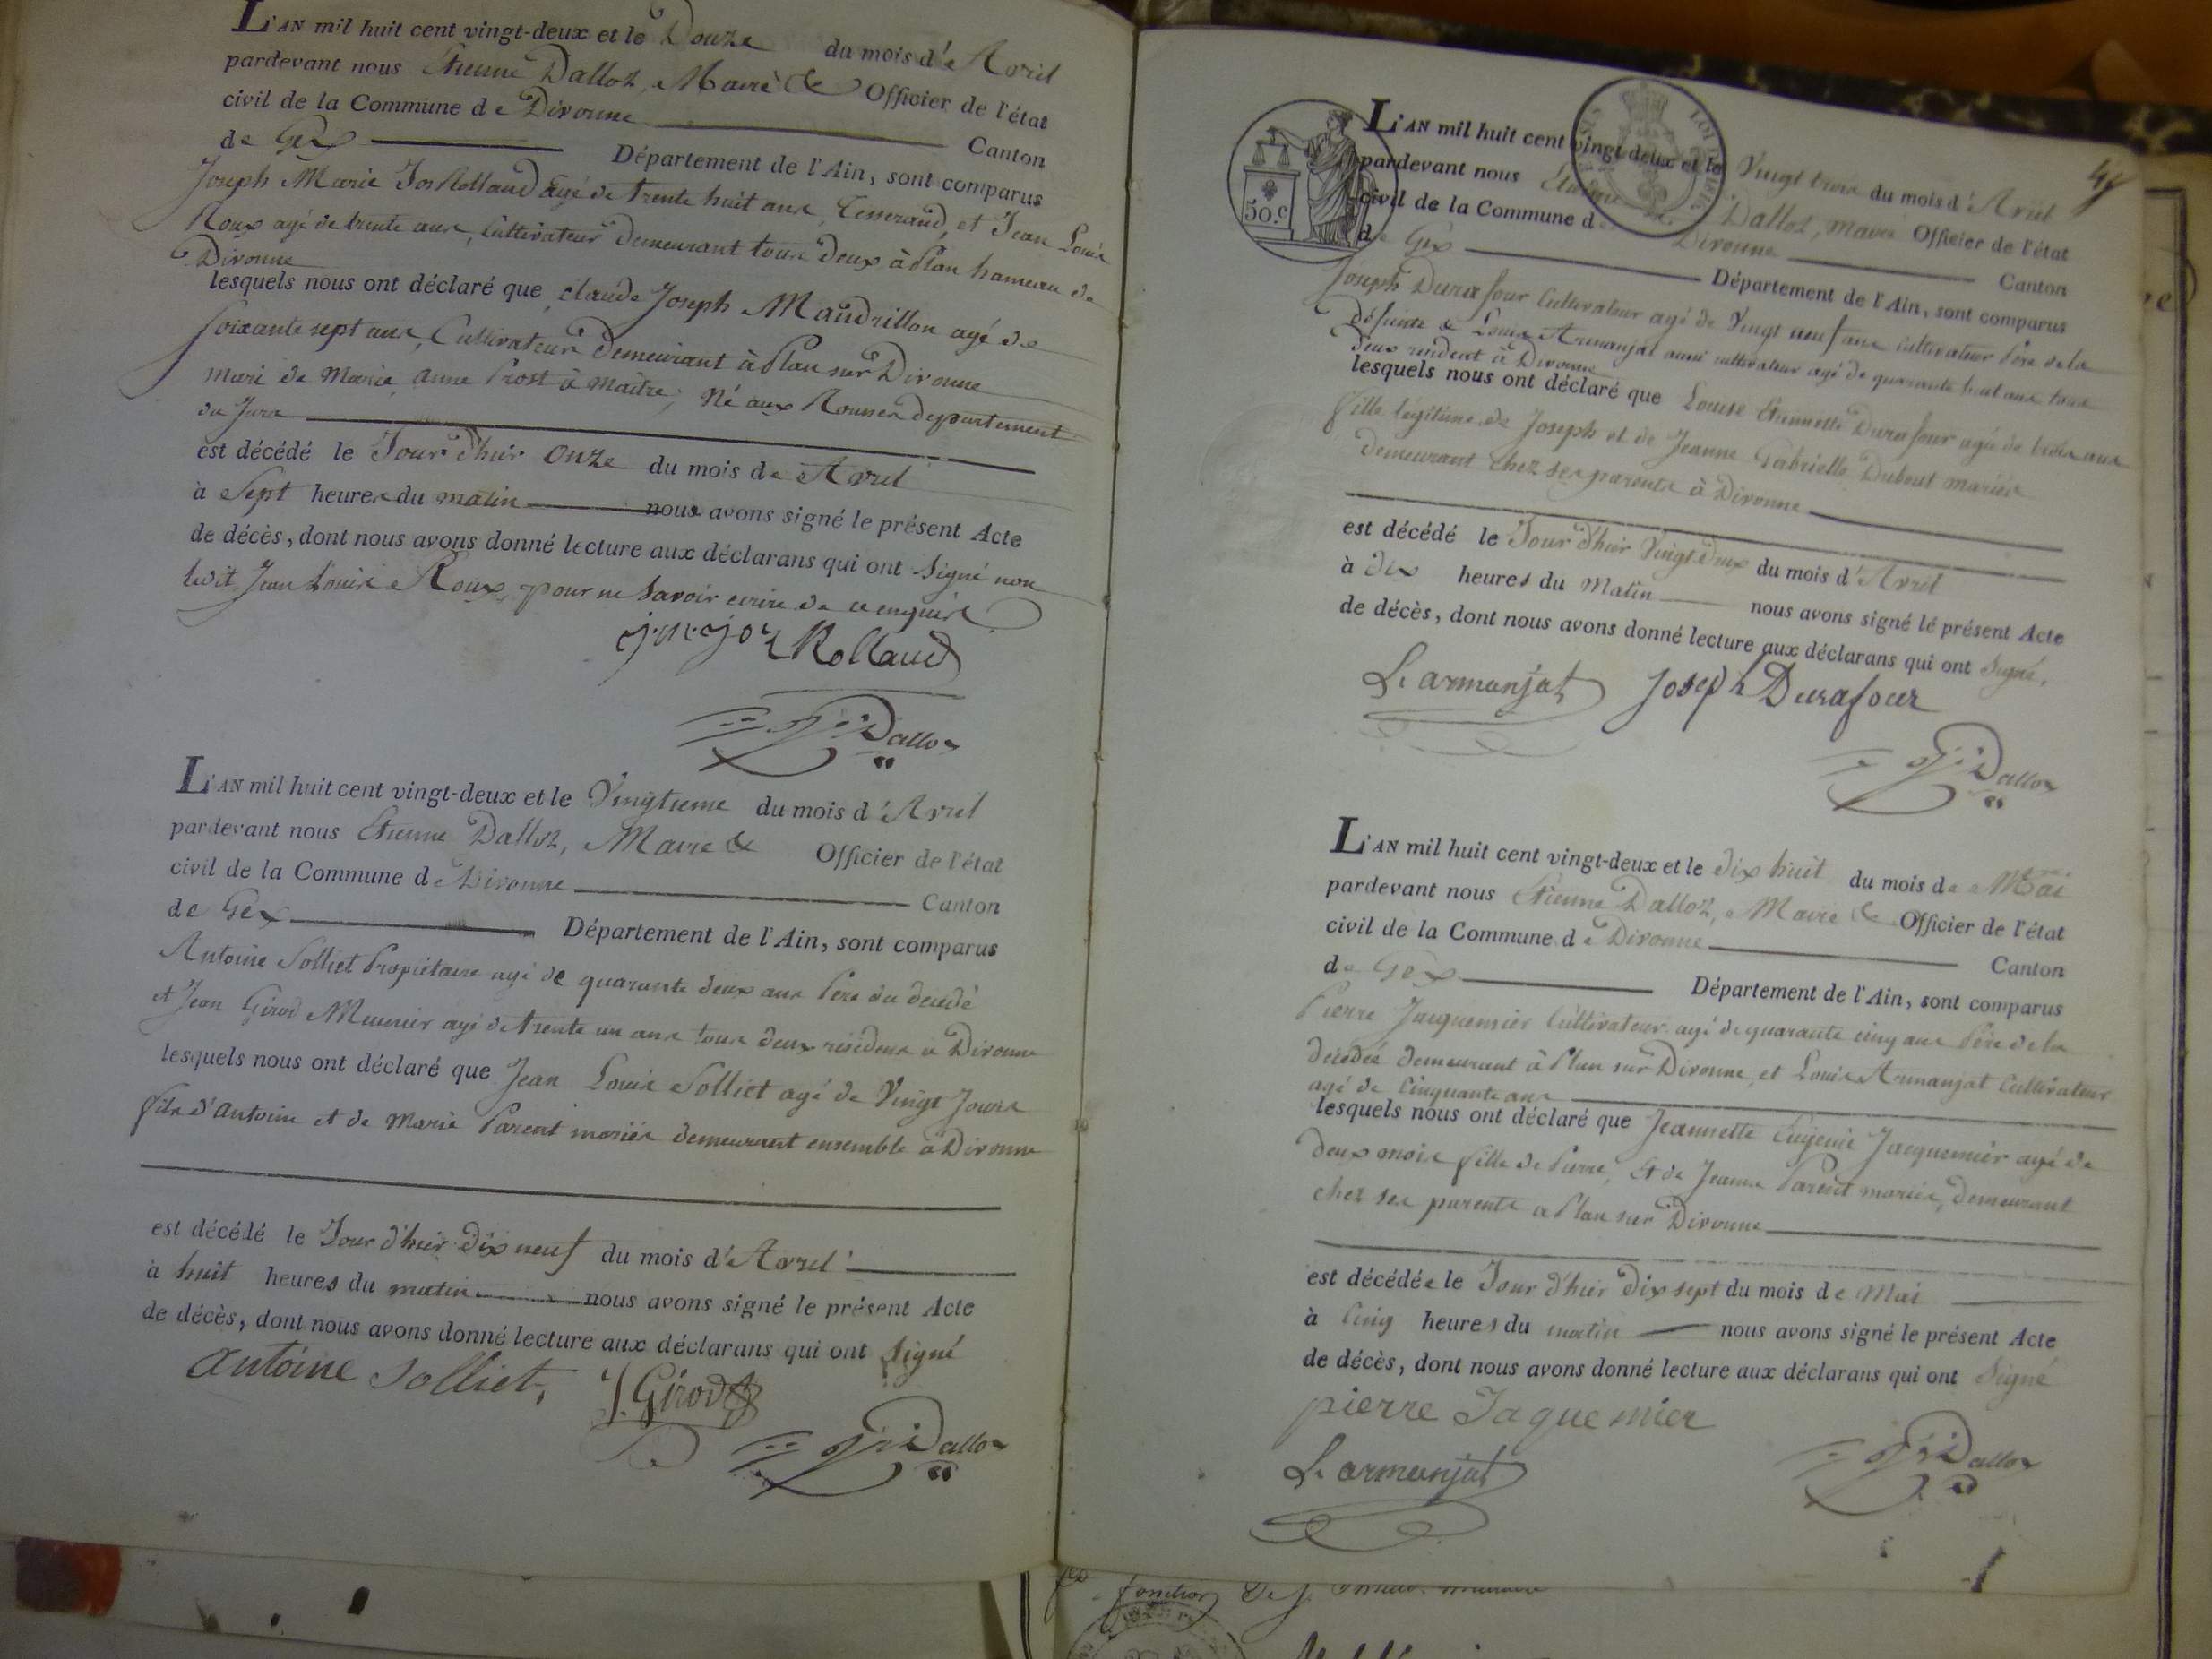 L'AN mil huit cent vingt-deux et le Douze du mois d'Avril
pardevant nous Etienne Dalloz, Maire & Officier de l'état
civil de la Commune de Divonne Canton
de Gex Département de l'Ain, sont comparus
Joseph Marie Jos Rolland agé de trente huit ans, Tesserand, et Jean Louis
Roux agé de trente ans, Cultivateur demeurant tous deux à Plan hameau de
Divonne
lesquels nous ont déclaré que Claude Joseph Maudrillon agé de
soixante sept ans, Cultivateur demeurant à Plan sur Divonne
mari de Marie Anne Prost à Maitre, Né aux Rousses departement
du Jura
est décédé le Jour d'hier Onze du mois de Avril
à Sept heures du matin nous avons signé le présent Acte
de décès, dont nous avons donné lecture aux déclarans qui ont Signé non
ledit Jean Louis Roux, pour ne Savoir ecrire de ce enquis
j. m. joz Rolland
Dalloz
L'AN mil huit cent vingt-deux et le Vingtieme du mois d'Avril
pardevant nous Etienne Dalloz, Maire & Officier de l'état
civil de la Commune de Divonne Canton
de Gex Département de l'Ain, sont comparus
Antoine Solliet Propietaire agé de quarante deux ans Père du decedé
et Jean Girod Meunier agé de trente un ans tous deux résidens à Divonne
lesquels nous ont déclaré que Jean Louis Solliet agé de Vingt Jours
fils d'Antoine et de Marie Parent mariés demeurant ensemble à Divonne
est décédé le Jour d'hier dix neuf du mois d'Avril
à huit heures du matin nous avons signé le présent Acte
de décès, dont nous avons donné lecture aux déclarans qui ont Signé
antoine Solliet, J. Girod
Dalloz
50.c
L'AN mil huit cent vingt-deux et le Vingt trois du mois d'Avril
pardevant nous Etienne Dalloz, Maire Officier de l'état
civil de la Commune de Divonne Canton
de Gex Département de l'Ain, sont comparus
Joseph Durafour Cultivateur agé de Vingt neuf ans Cultivateur Père de la
défunte & Louis Armanjat aussi cultivateur agé de quarante huit ans tous
deux rendent à Divonne
lesquels nous ont déclaré que Louise Etiennette Durafour agée de trois ans
fille légitime de Joseph et de Jeanne Gabrielle Dubout mariés
demeurant chez ses parents à Divonne
est décédé le Jour d'hier Vingt deux du mois d'Avril
à dix heures du Matin nous avons signé le présent Acte
de décès, dont nous avons donné lecture aux déclarans qui ont Signé.
L. armanjat Joseph Durafour
Dalloz
L'AN mil huit cent vingt-deux et le dix huit du mois de Mai
pardevant nous Etienne Dalloz, Maire & Officier de l'état
civil de la Commune de Divonne Canton
de Gex Département de l'Ain, sont comparus
Pierre Jacquemier Cultivateur agé de quarante cinq ans Père de la
décédée demeurant à Plan sur Divonne, et Louis Armanjat Cultivateur
agé de Cinquante ans
lesquels nous ont déclaré que Jeannette Eugenie Jacquemier agé de
deux mois fille de Pierre, et de Jeanne Parent mariés, demeurant
chez ses parents a Plan sur Divonne
est décédée le Jour d'hier dix sept du mois de Mai
à Cinq heures du matin nous avons signé le présent Acte
de décès, dont nous avons donné lecture aux déclarans qui ont Signé
pierre Jaquemier
L. armanjat
Dalloz